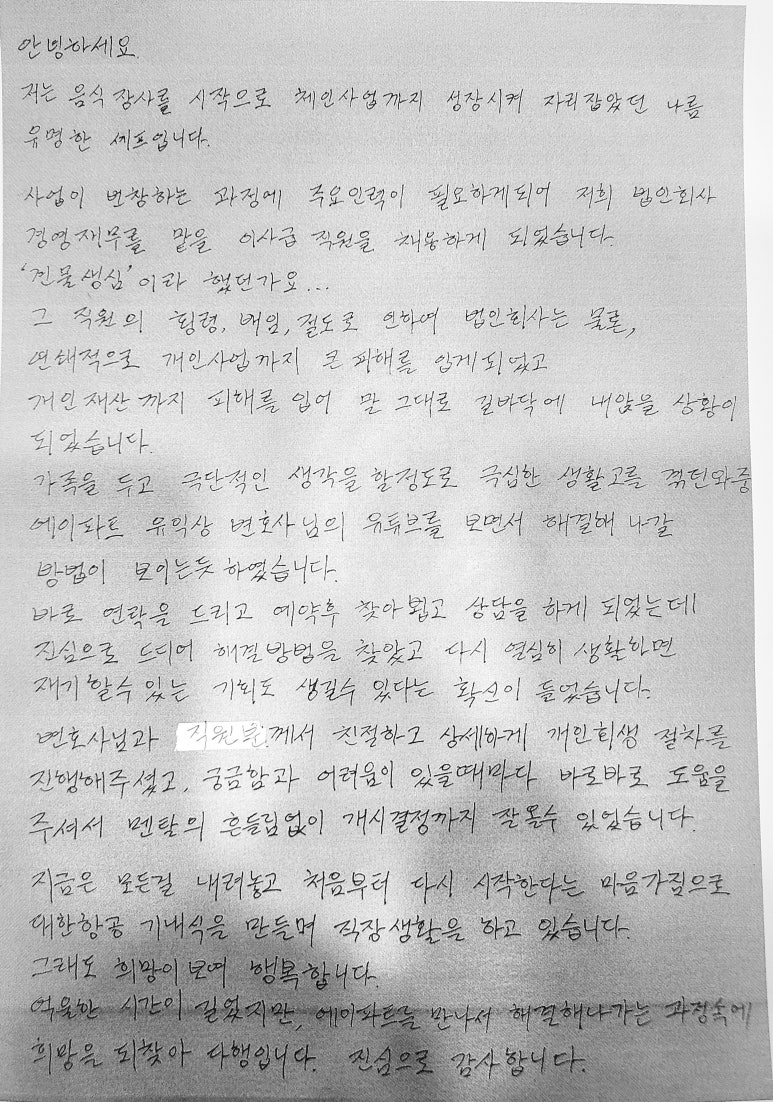 안녕하세요.
저는 음식 장사를 시작으로 체인사업까지 성장시켜 자리잡았던 나름
유명한 셰프입니다.
사업이 번창하는 과정에 주요인력이 필요하게되어 저희 법인회사
경영재무를 맡을 이사급 직원을 채용하게 되었습니다.
'견물생심'이라 했던가요...
그 직원의 횡령, 배임, 절도로 인하여 법인회사는 물론,
연쇄적으로 개인사업까지 큰 피해를 입게되었고
개인재산까지 피해를 입어 말 그대로 길바닥에 내앉을 상황이
되었습니다.
가족을 두고 극단적인 생각을 할정도로 극심한 생활고를 겪던와중
에이파트 유익상 변호사님의 유튜브를 보면서 해결해 나갈
방법이 보이는듯 하였습니다.
바로 연락을 드리고 예약후 찾아뵙고 상담을 하게 되었는데
진심으로 드디어 해결방법을 찾았고 다시 열심히 생활하면
재기할수 있는 기회도 생길수 있다는 확신이 들었습니다.
변호사님과 직원분께서 친절하고 상세하게 개인회생 절차를
진행해주셨고, 궁금함과 어려움이 있을때마다 바로바로 도움을
주셔서 멘탈의 흔들림없이 개시결정까지 잘 올수 있었습니다.
지금은 모든걸 내려놓고 처음부터 다시 시작한다는 마음가짐으로
대한항공 기내식을 만들며 직장생활을 하고 있습니다.
그래도 희망이보여 행복합니다.
억울한 시간이 길었지만, 에이파트를 만나서 해결해나가는 과정속에
희망을 되찾아 다행입니다. 진심으로 감사합니다.